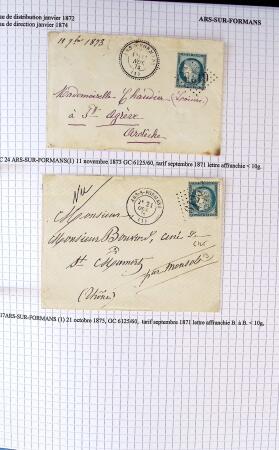 ue de distribution janvier 1872
ARS-SUR-FORMANS
au de direction janvier 1874
11 9bre 1873
Mademoiselle Chaudier (Louise)
à St Agrève
Ardèche
C 24 ARS-SUR-FORMANS(1) 11 novembre 1873 GC 6125/60, tarif septembre 1871 lettre affranchie < 10g.
Monsieur
Monsieur Bouvard, curé de
St Mamert
par Monsols
(Rhône)
17ARS-SUR-FORMANS (1) 21 octobre 1875, GC 6125/60, tarif septembre 1871 lettre affranchie B. à B. < 10g,